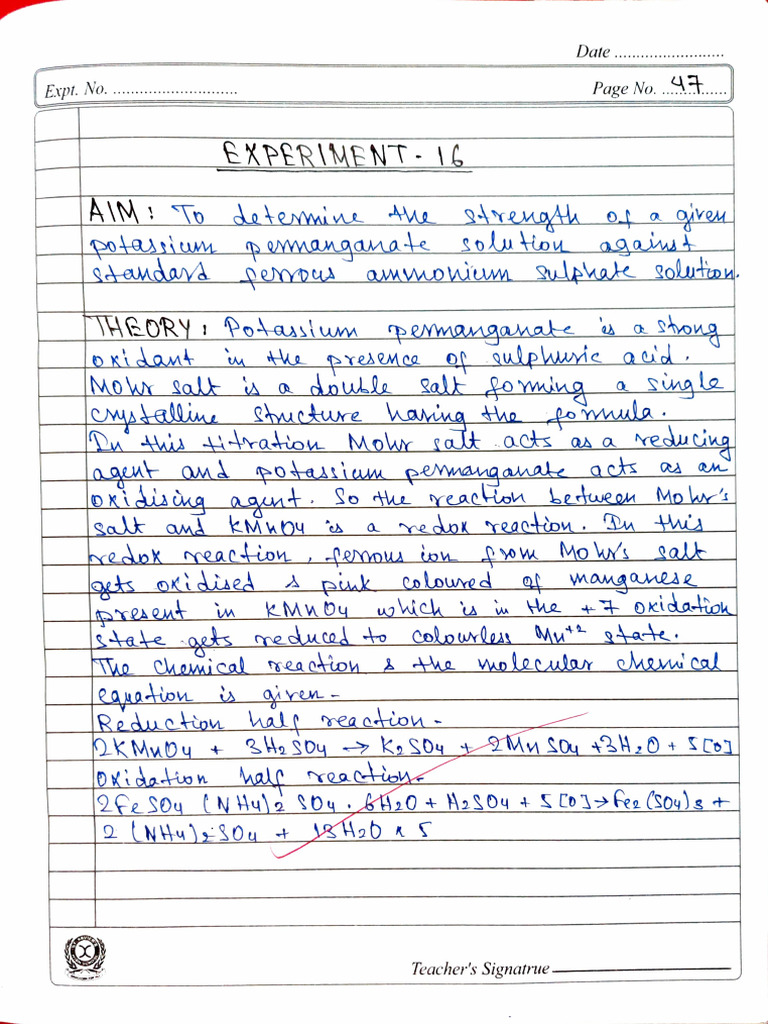 Date ..........................
Expt. No. ............................ Page No. 47
EXPERIMENT - 16
AIM : To determine the strength of a given
potassium permanganate solution against
standard ferrous ammonium sulphate solution.
THEORY : Potassium permanganate is a strong
oxidant in the presence of sulphuric acid.
Mohr salt is a double salt forming a single
crystalline structure having the formula.
In this titration Mohr salt acts as a reducing
agent and potassium permanganate acts as an
oxidising agent. So the reaction between Mohr's
salt and KMnO4 is a redox reaction. In this
redox reaction, ferrous ion from Mohr's salt
gets oxidised & pink coloured of manganese
present in KMnO4 which is in the +7 oxidation
state gets reduced to colourless Mn+2 state.
The chemical reaction & the molecular chemical
equation is given -
Reduction half reaction -
2KMnO4 + 3H2SO4 → K2SO4 + 2MnSO4 + 3H2O + 5[O]
Oxidation half reaction -
2FeSO4 (NH4)2 SO4 . 6H2O + H2SO4 + 5[O] → Fe2(SO4)3 +
2 (NH4)2 SO4 + 13H2O x 5
Teacher's Signatrue